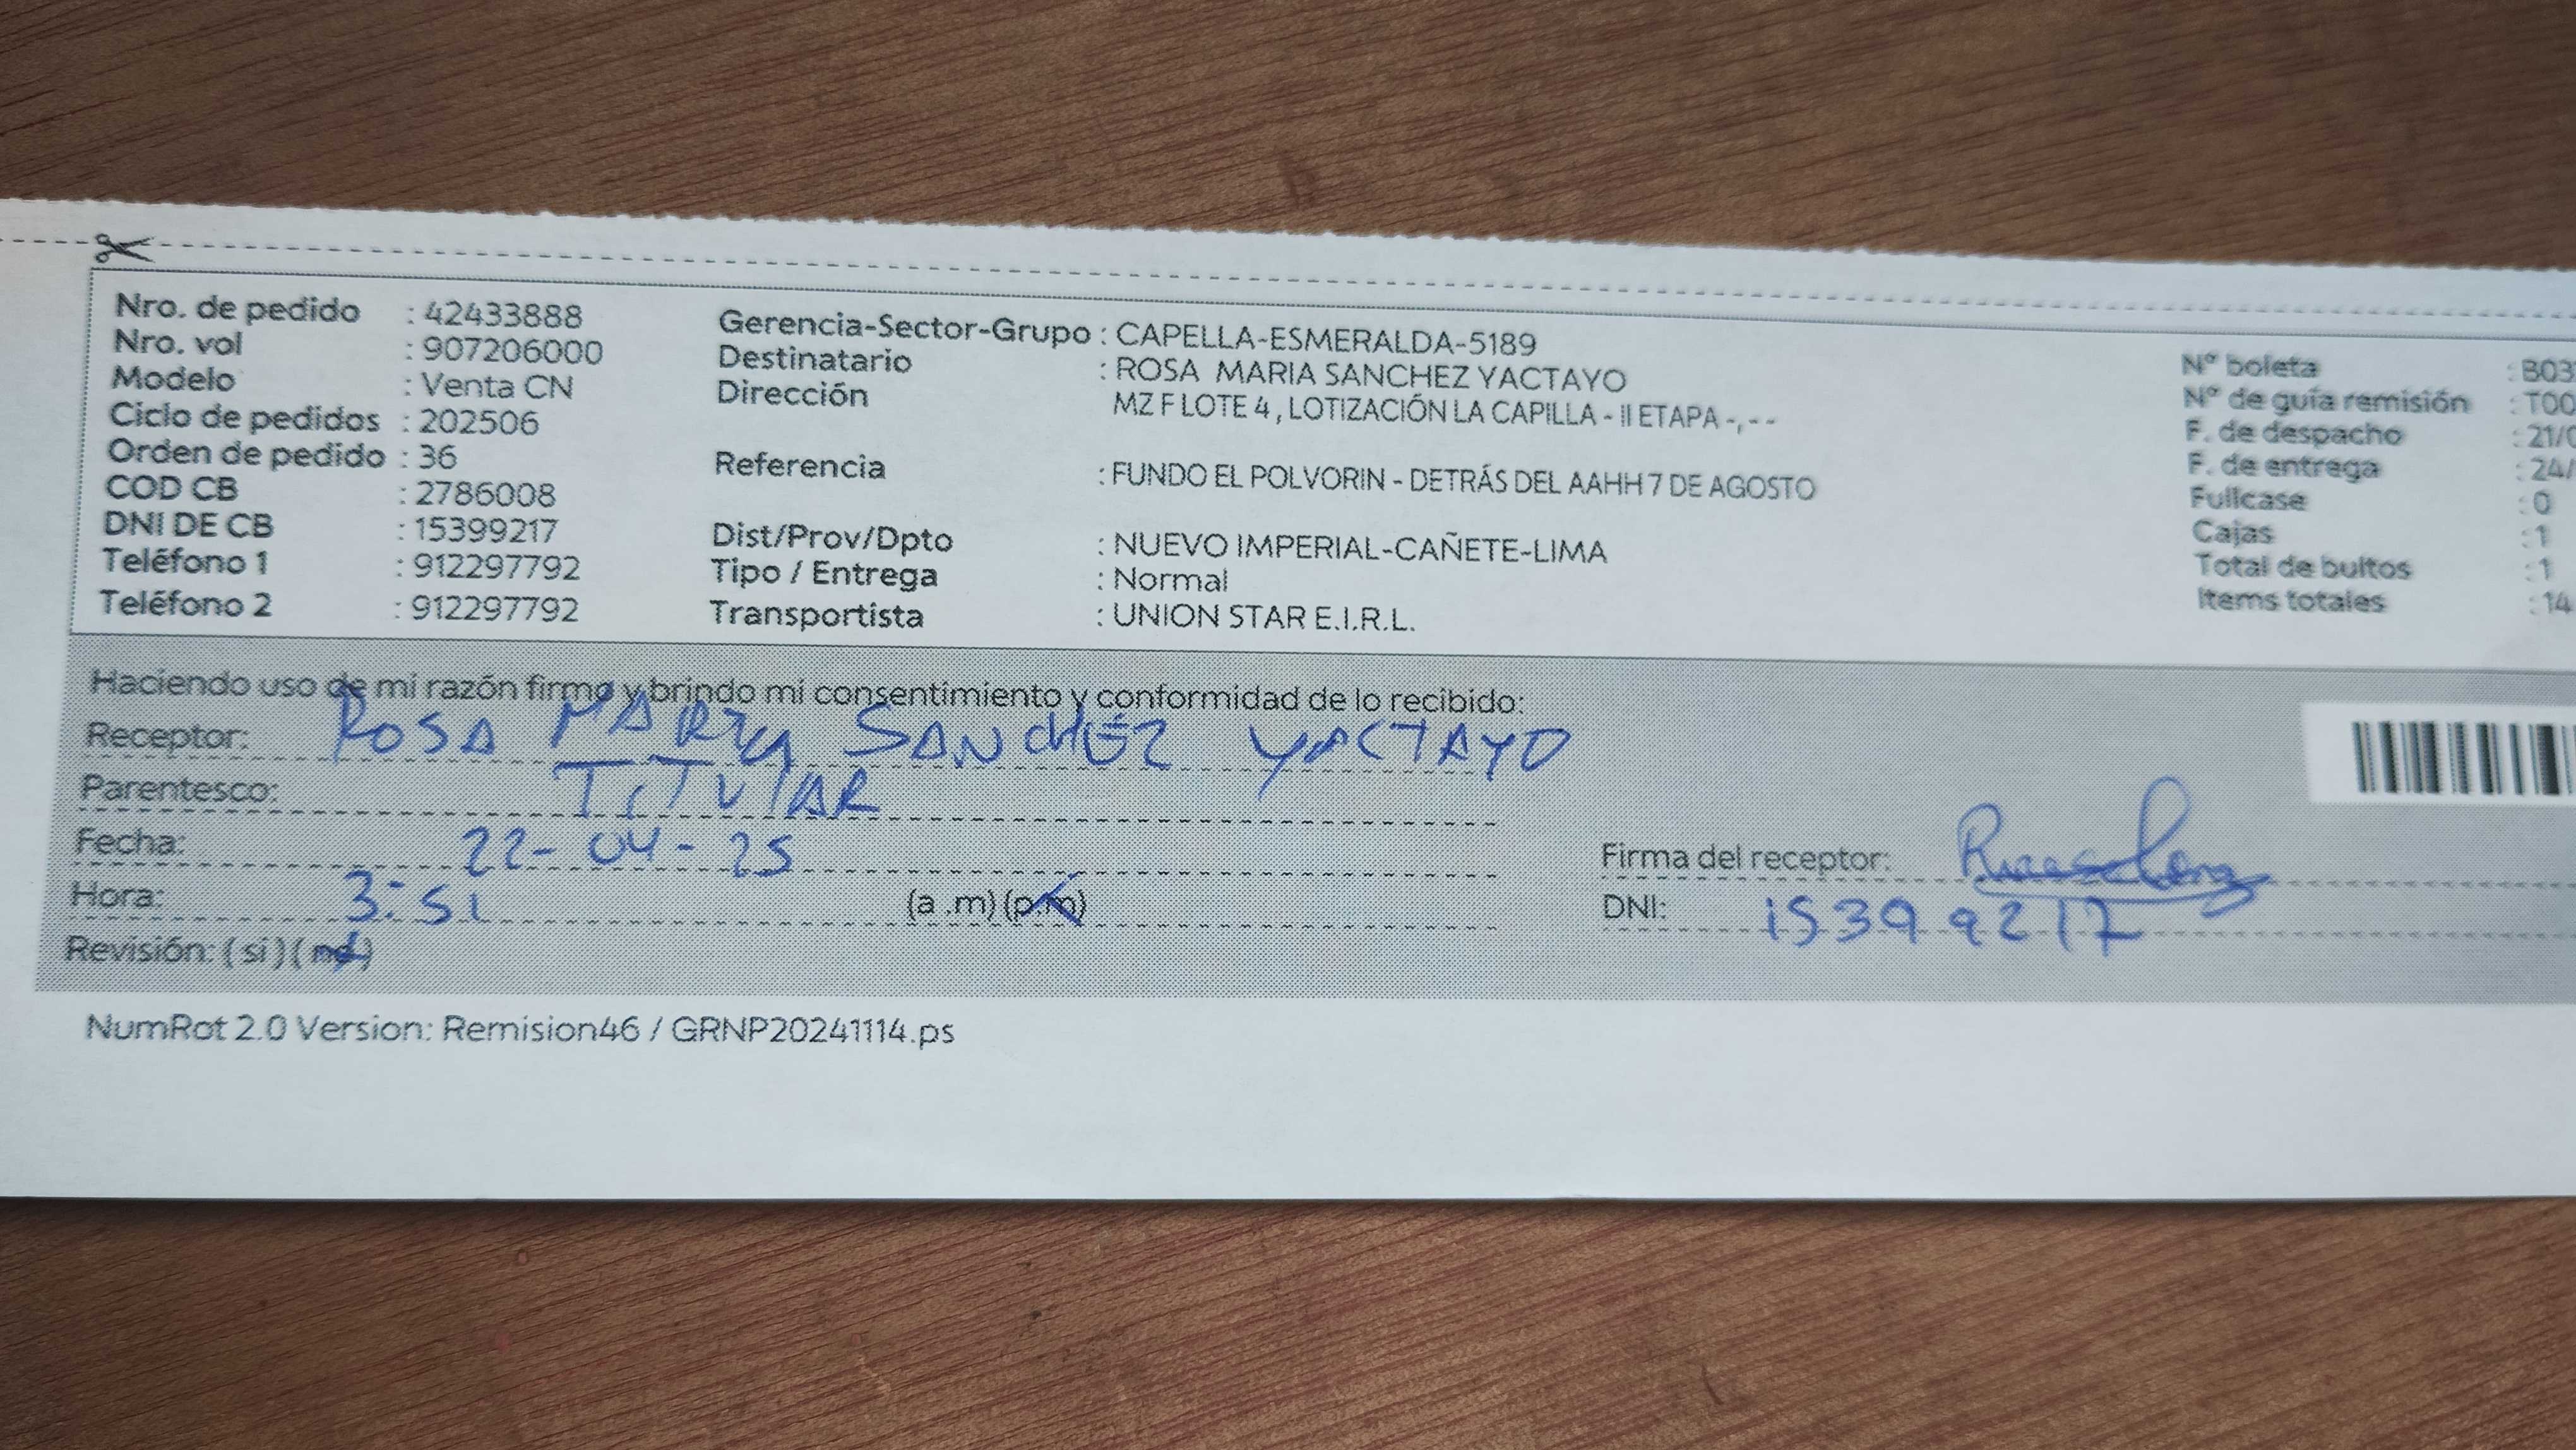 Nro. de pedido : 42433888
Nro. vol : 907206000
Modelo : Venta CN
Ciclo de pedidos : 202506
Orden de pedido : 36
COD CB : 2786008
DNI DE CB : 15399217
Teléfono 1 : 912297792
Teléfono 2 : 912297792
Gerencia-Sector-Grupo : CAPELLA-ESMERALDA-5189
Destinatario : ROSA MARIA SANCHEZ YACTAYO
Dirección MZ F LOTE 4 , LOTIZACIÓN LA CAPILLA - II ETAPA -, - -
Referencia : FUNDO EL POLVORIN - DETRÁS DEL AAHH 7 DE AGOSTO
Dist/Prov/Dpto : NUEVO IMPERIAL-CAÑETE-LIMA
Tipo / Entrega : Normal
Transportista : UNION STAR E.I.R.L.
N° boleta : B03
N° de guía remisión : T00
F. de despacho : 21/0
F. de entrega : 24/
Fullcase : 0
Cajas : 1
Total de bultos : 1
Items totales : 14
Haciendo uso de mi razón firmo y brindo mi consentimiento y conformidad de lo recibido:
Receptor: ROSA MARIA SANCHEZ YACTAYO
Parentesco: TITULAR
Fecha: 22-04-25
Hora: 3:51 (a .m) (p.m)
Revisión: ( si ) ( no )
Firma del receptor:
DNI: 15399217
NumRot 2.0 Version: Remision46 / GRNP20241114.ps